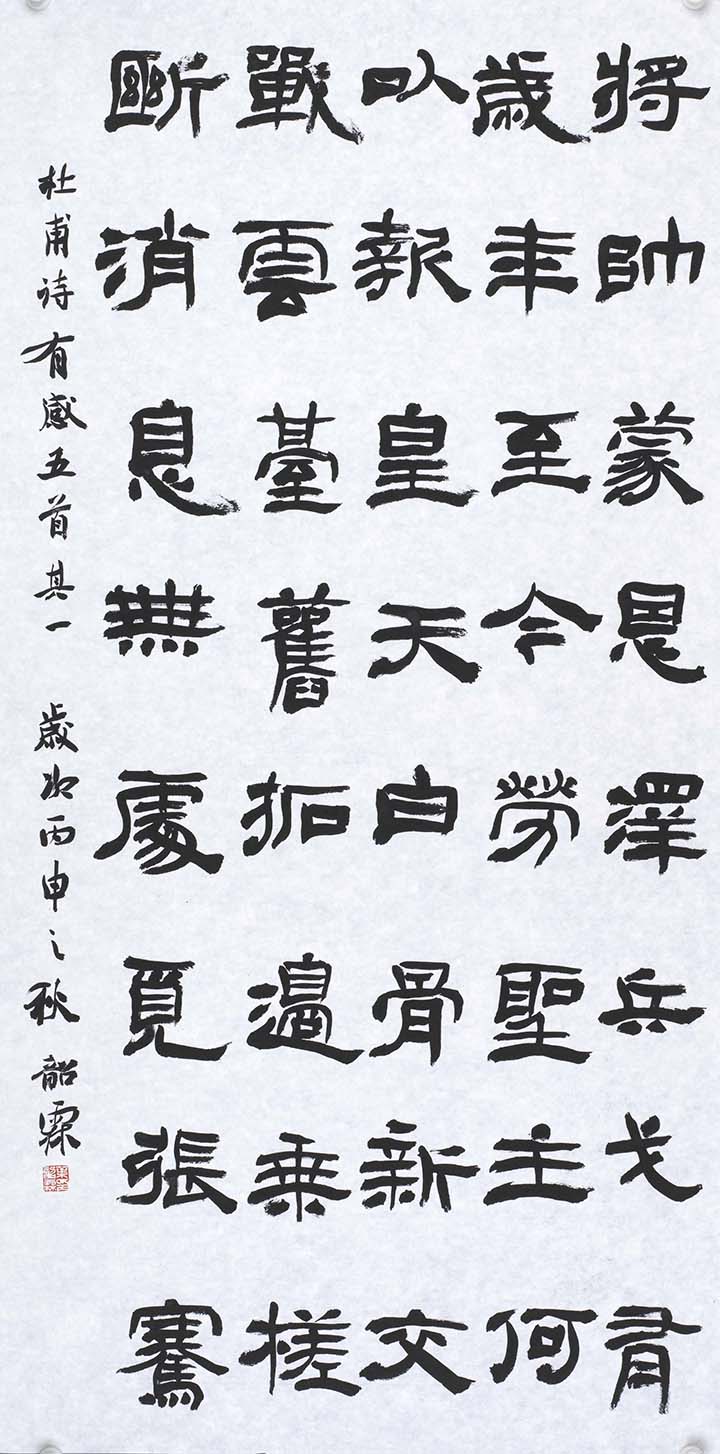 將帥蒙恩澤兵戈有
歲年至今勞聖主何
以報皇天白骨新交
戰雲臺舊拓邊乘槎
斷消息無處覓張騫
杜甫诗有感五首其一 歲次丙申之秋 韶霖